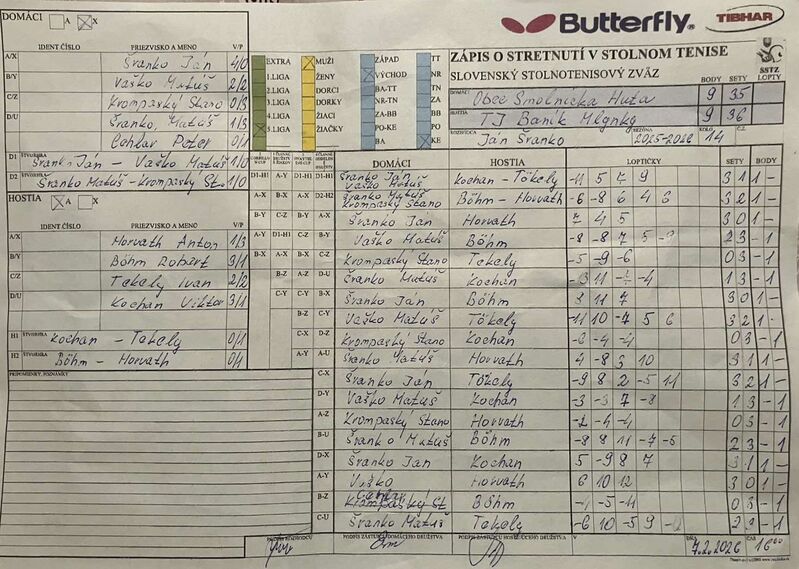 DOMÁCI A X
Butterfly
TIBHAR
IDENT ČÍSLO PRIEZVISKO A MENO V/P
A/X Švanko Ján 4/0
B/Y Vaško Matúš 2/2
C/Z Krompaský Stano 0/3
D/U Švanko, Matúš 1/3
Cehlar Peter 0/1
D1 ŠTVORHRA Švanko Ján - Vaško Matúš 1/0
D2 ŠTVORHRA Švanko Matúš - Krompaský St. 1/0
EXTRA MUŽI ZÁPAD TT
1.LIGA ŽENY VÝCHOD NR
2.LIGA DORCI BA-TT
3.LIGA DORKY NR-TN ZA
ŽIACI ZA-BB BB
5.LIGA ŽIAČKY PO-KE
BA KE
ZÁPIS O STRETNUTÍ V STOLNOM TENISE
SLOVENSKÝ STOLNOTENISOVÝ ZVÄZ
SSTZ
BODY SETY LOPTY
DOMÁCI Obec Smolnícka Huta 9 35
HOSTIA TJ Baník Mlynky 9 36
ROZHODCA Ján Švanko SEZÓNA 2025-2026 KOLO 14 Č.Z.
HOSTIA X A X
IDENT ČÍSLO PRIEZVISKO A MENO V/P
A/X Horvath Anton 1/3
B/Y Böhm Robert 3/1
C/Z Tekely Ivan 2/2
D/U Kochan Viktor 3/1
H1 ŠTVORHRA Kochan - Tekely 0/1
H2 ŠTVORHRA Böhm - Horvath 0/1
PRIPOMIENKY, POZNÁMKY
DOMÁCI HOSTIA LOPTIČKY SETY BODY
D1-H1 Švanko Ján Vaško Matúš Kochan - Tökely -11 5 7 9 3 1 1 -
D2-H2 Švanko Matúš Krompaský Stano Böhm - Horvath -6 -8 6 4 6 3 2 1 -
A-X Švanko Jan Horvath 7 4 5 3 0 1 -
B-Y Vaško Matúš Böhm -8 -8 7 5 2 3 - 1
C-Z Krompaský Stano Tekely -5 -9 -6 0 3 - 1
D-U Švanko Matúš Kochan 11 -4 1 3 - 1
B-X Švanko Ján Böhm 8 11 7 3 0 1 -
C-Y Vaško Matúš Tökely -11 10 -4 5 6 3 2 1 -
D-Z Krompaský Stano Kochan -4 -4 0 3 - 1
A-U Švanko Matúš Horvath 4 -8 3 10 3 1 1 -
C-X Švanko Jan Tökely -9 8 2 -5 11 3 2 1 -
D-Y Vaško Matúš Kochán -3 -3 7 -8 1 3 - 1
A-Z Krompaský Stano Horvath -4 -4 0 3 - 1
B-U Švanko Matúš Böhm -8 8 11 -7 -5 2 3 - 1
D-X Švanko Jan Kochan 5 -9 8 7 3 1 1 -
A-Y Vaško Horvath 6 10 12 3 0 1 -
B-Z Cehlar Krompaský St Böhm -5 -11 0 3 - 1
C-U Švanko Matúš Tekely -6 10 -5 9 2 3 - 1
PODPIS ROZHODCU PODPIS ZÁSTUPCU DOMÁCEHO DRUŽSTVA PODPIS ZÁSTUPCU HOSŤUJÚCEHO DRUŽSTVA V DŇA 7.2.2026 ČAS 16 00